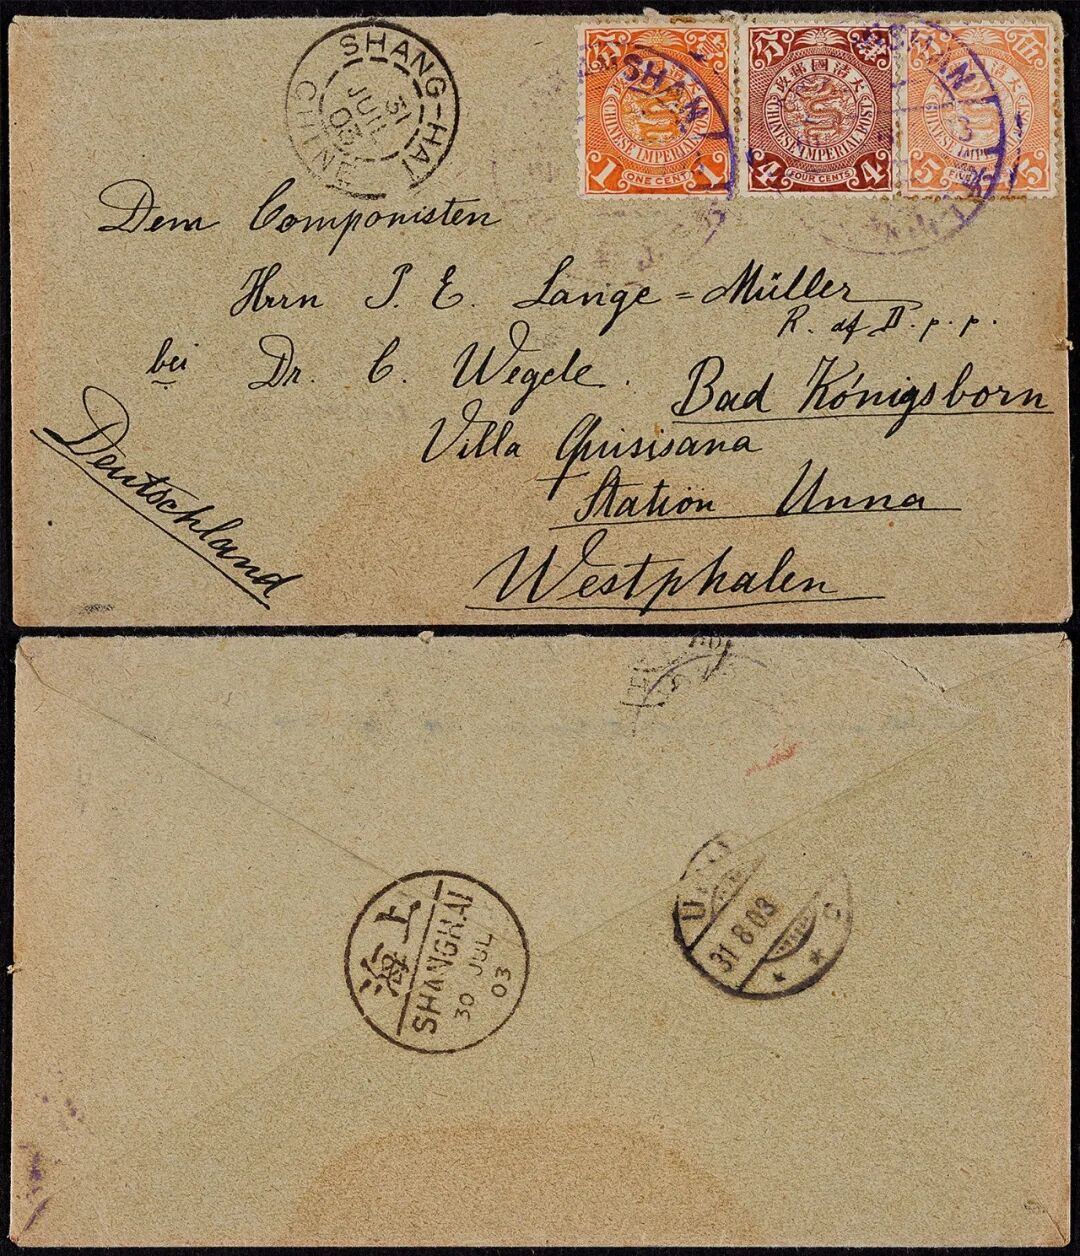 SHANG-HAI
31
JUIL
03
CHINE
分 壹
CHINESE IMPERIAL POST
1 ONE CENT 1
分 肆
政郵國清大
CHINESE IMPERIAL POST
4 FOUR CENTS 4
伍
CHINESE IMPERIAL
5 5
Dem Componisten
Herrn P. E. Lange=Müller
R. af D. p. p.
bei Dr. C. Wegele.
Bad Königsborn
Villa Quisisana
Station Unna
Westphalen
Deutschland
上海
SHANGHAI
30 JUL
03
31 8 03
* *